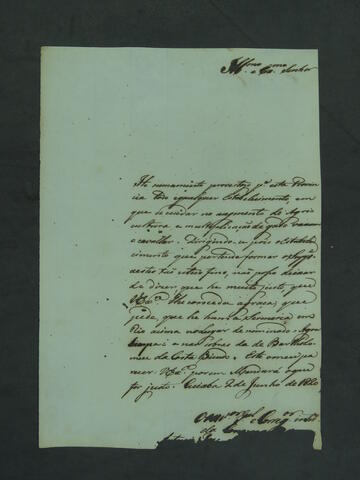 Illmo. e Exmo. Senhor
He sumamente proveitozo pa. esta Provin
cia todo equalquer Estabelecimento, em
que se cuidar no augmento da Agri
cultura, e multiplicação de gado vacum
e cavallar. Dirigindo-se pois o Estabele
cimento que pertende formar o Suppe.
a estes fins, não posso deixar
de dizer, que he muito justo que
V. Exa. lhe conceda a graça, que
pede, que he huma Sesmaria em
Rio asima no lugar denominado
e nas sobras da de Bartholo
meu da Costa. Este o meu pa
recer. V. Exa. porem Mandará o que
for justo. Cuiabá 2 de Junho de 1820